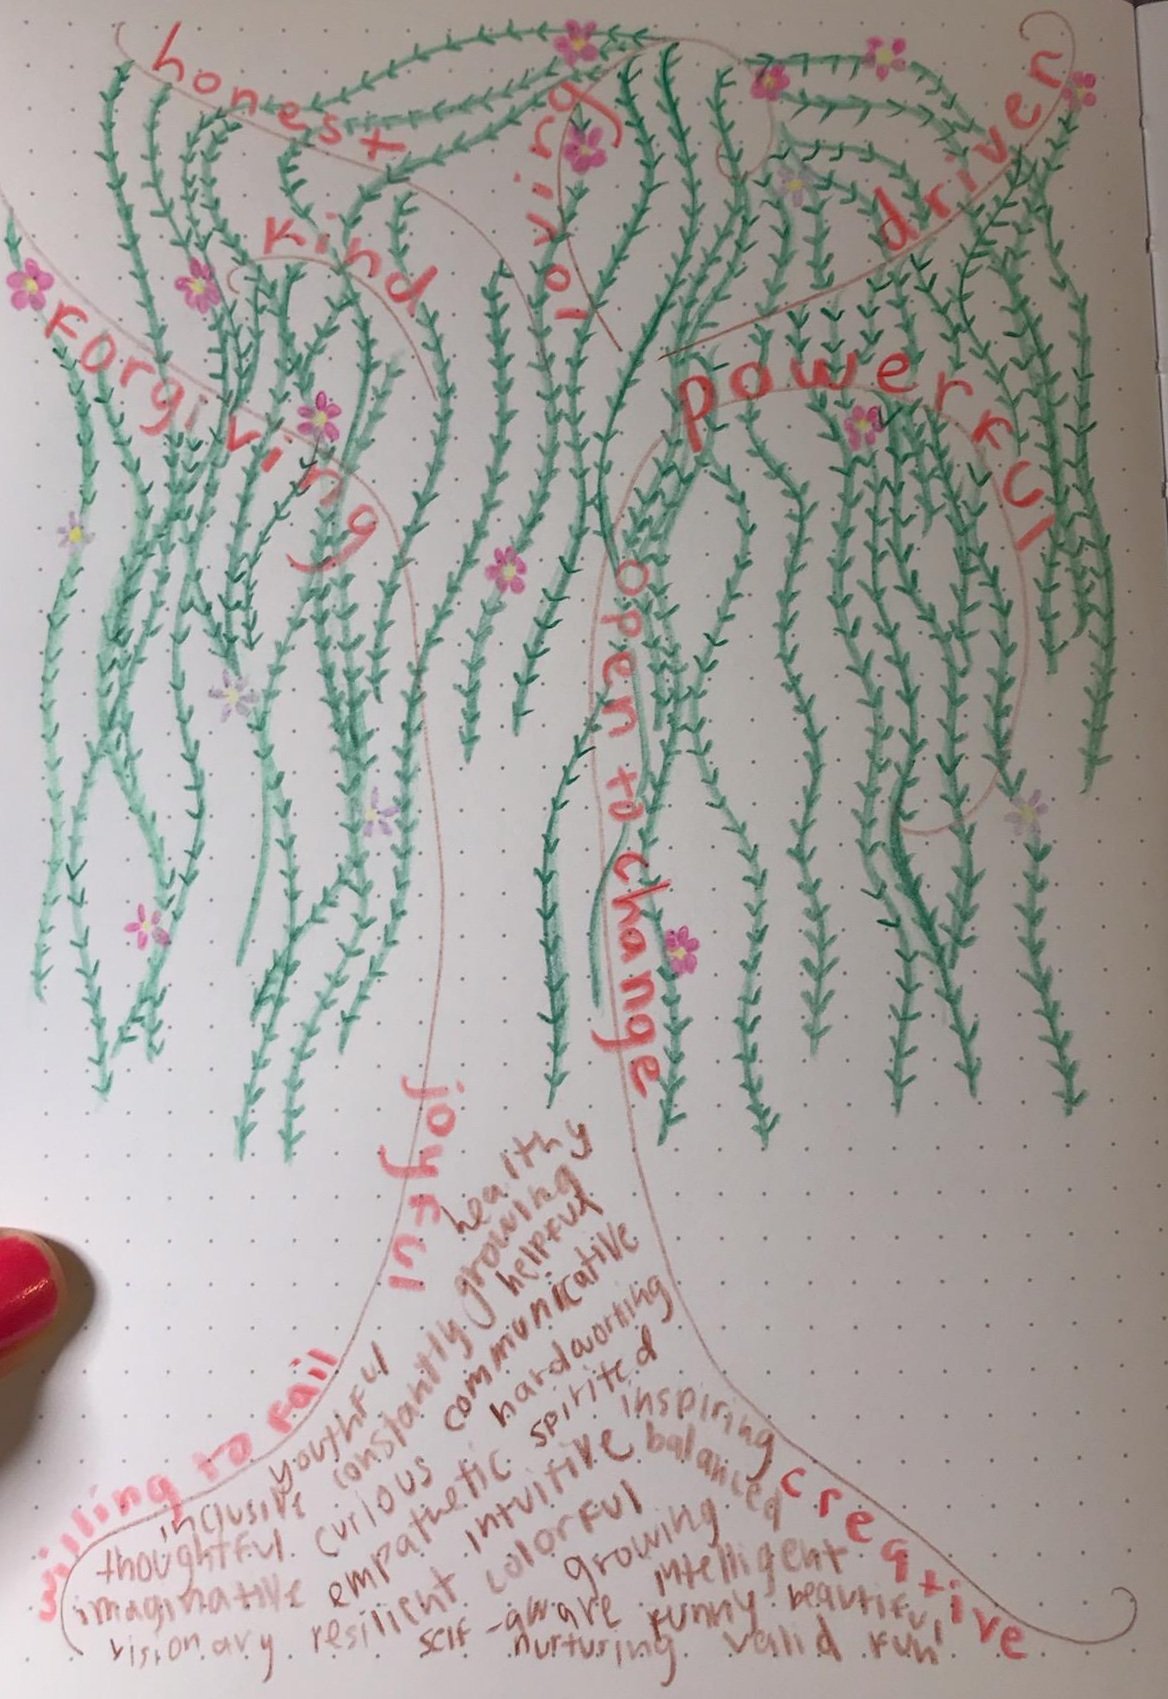 honest
loving
driven
kind
forgiving
powerful
open to change
joyful
willing to fail
creative
healthy
constantly growing
helpful
communicative
youthful
hardworking
spirited
inspiring
inclusive
curious
balanced
thoughtful
empathetic
intuitive
imaginative
colorful
growing
intelligent
visionary
resilient
self-aware
funny
beautiful
nurturing
valid
fun